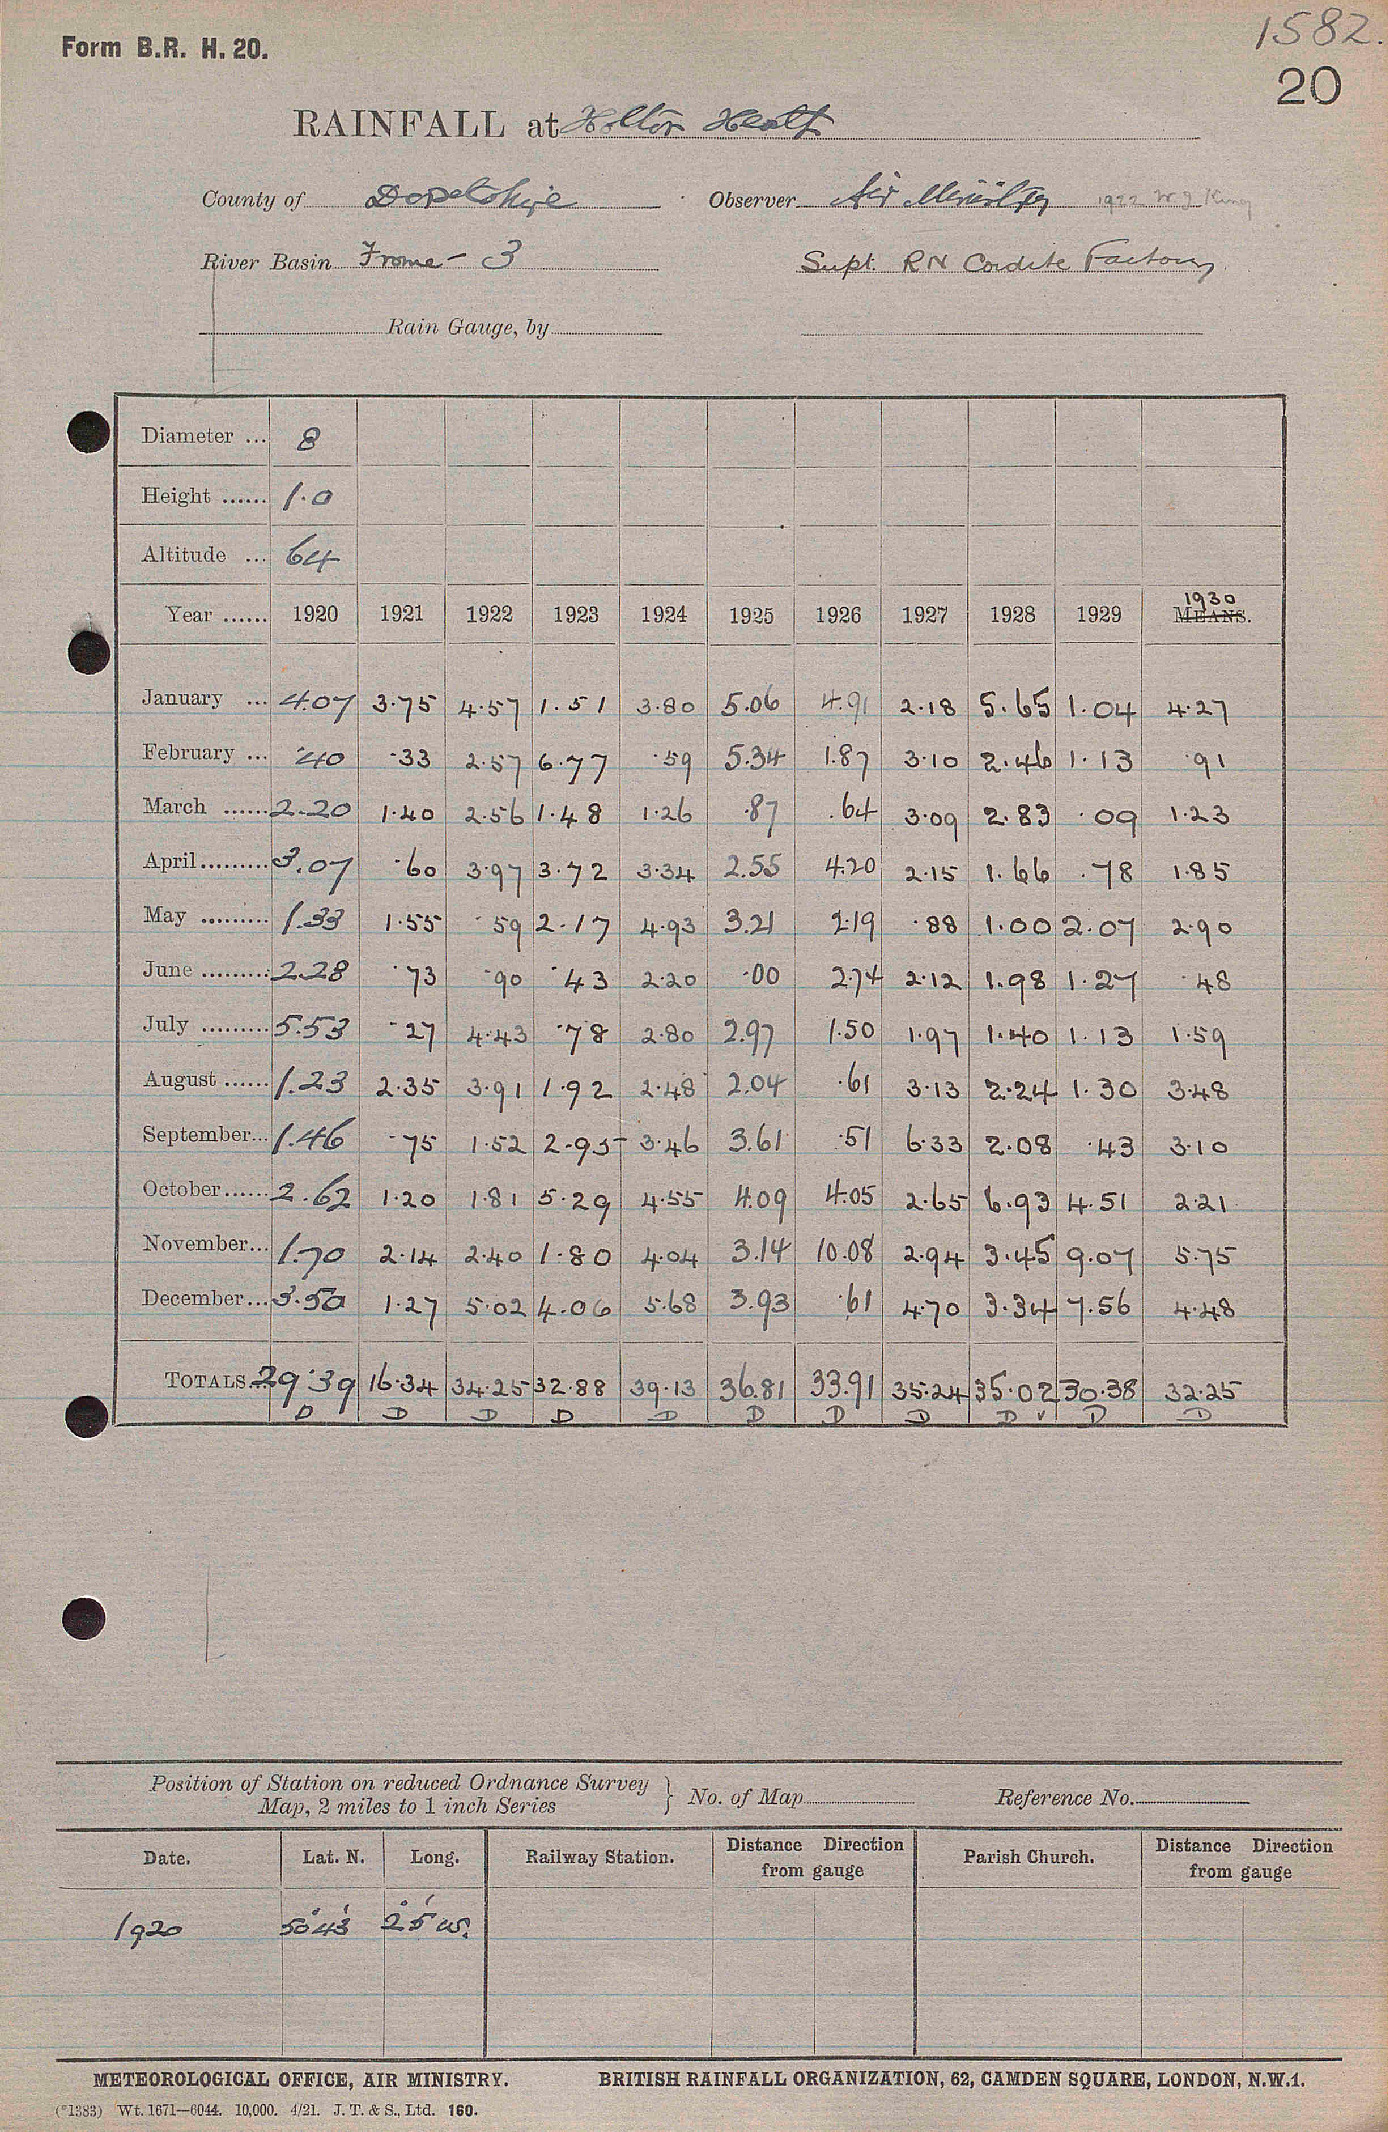 1582.
Form B.R. H. 20.
20
RAINFALL at Holton Heath
County of Dorsetshire Observer Air Ministry 1922 W. J. King
River Basin Frome - 3 Supt. RN Cordite Factory
Rain Gauge, by
Diameter ... 8
Height ...... 1.0
Altitude ... 64
1930
Year ...... 1920 1921 1922 1923 1924 1925 1926 1927 1928 1929 MEANS.
January ... 4.07 3.75 4.57 1.51 3.80 5.06 4.91 2.18 5.65 1.04 4.27
February ... .40 .33 2.57 6.77 .59 5.34 1.87 3.10 2.46 1.13 .91
March ...... 2.20 1.40 2.56 1.48 1.26 .87 .64 3.09 2.83 .09 1.23
April ......... 3.07 .60 3.97 3.72 3.34 2.55 4.20 2.15 1.66 .78 1.85
May ......... 1.33 1.55 .59 2.17 4.93 3.21 2.19 .88 1.00 2.07 2.90
June ......... 2.28 .73 .90 .43 2.20 .00 2.74 2.12 1.98 1.27 .48
July ......... 5.53 .27 4.43 .78 2.80 2.97 1.50 1.97 1.40 1.13 1.59
August ...... 1.23 2.35 3.91 1.92 2.48 2.04 .61 3.13 2.24 1.30 3.48
September... 1.46 .75 1.52 2.95 3.46 3.61 .51 6.33 2.08 .43 3.10
October...... 2.62 1.20 1.81 5.29 4.55 4.09 4.05 2.65 6.93 4.51 2.21
November... 1.70 2.14 2.40 1.80 4.04 3.14 10.08 2.94 3.45 9.07 5.75
December... 3.50 1.27 5.02 4.06 5.68 3.93 .61 4.70 3.34 7.56 4.48
TOTALS... 29.39 16.34 34.25 32.88 39.13 36.81 33.91 35.24 35.02 30.38 32.25
D D D D D D D D D v D D
Position of Station on reduced Ordnance Survey Map, 2 miles to 1 inch Series } No. of Map Reference No.
Date. Lat. N. Long. Railway Station. Distance Direction from gauge Parish Church. Distance Direction from gauge
1920 50° 43' 2° 5' W.
METEOROLOGICAL OFFICE, AIR MINISTRY. BRITISH RAINFALL ORGANIZATION, 62, CAMDEN SQUARE, LONDON, N.W.1.
(*1383) Wt. 1671—6044. 10,000. 4/21. J. T. & S., Ltd. 160.